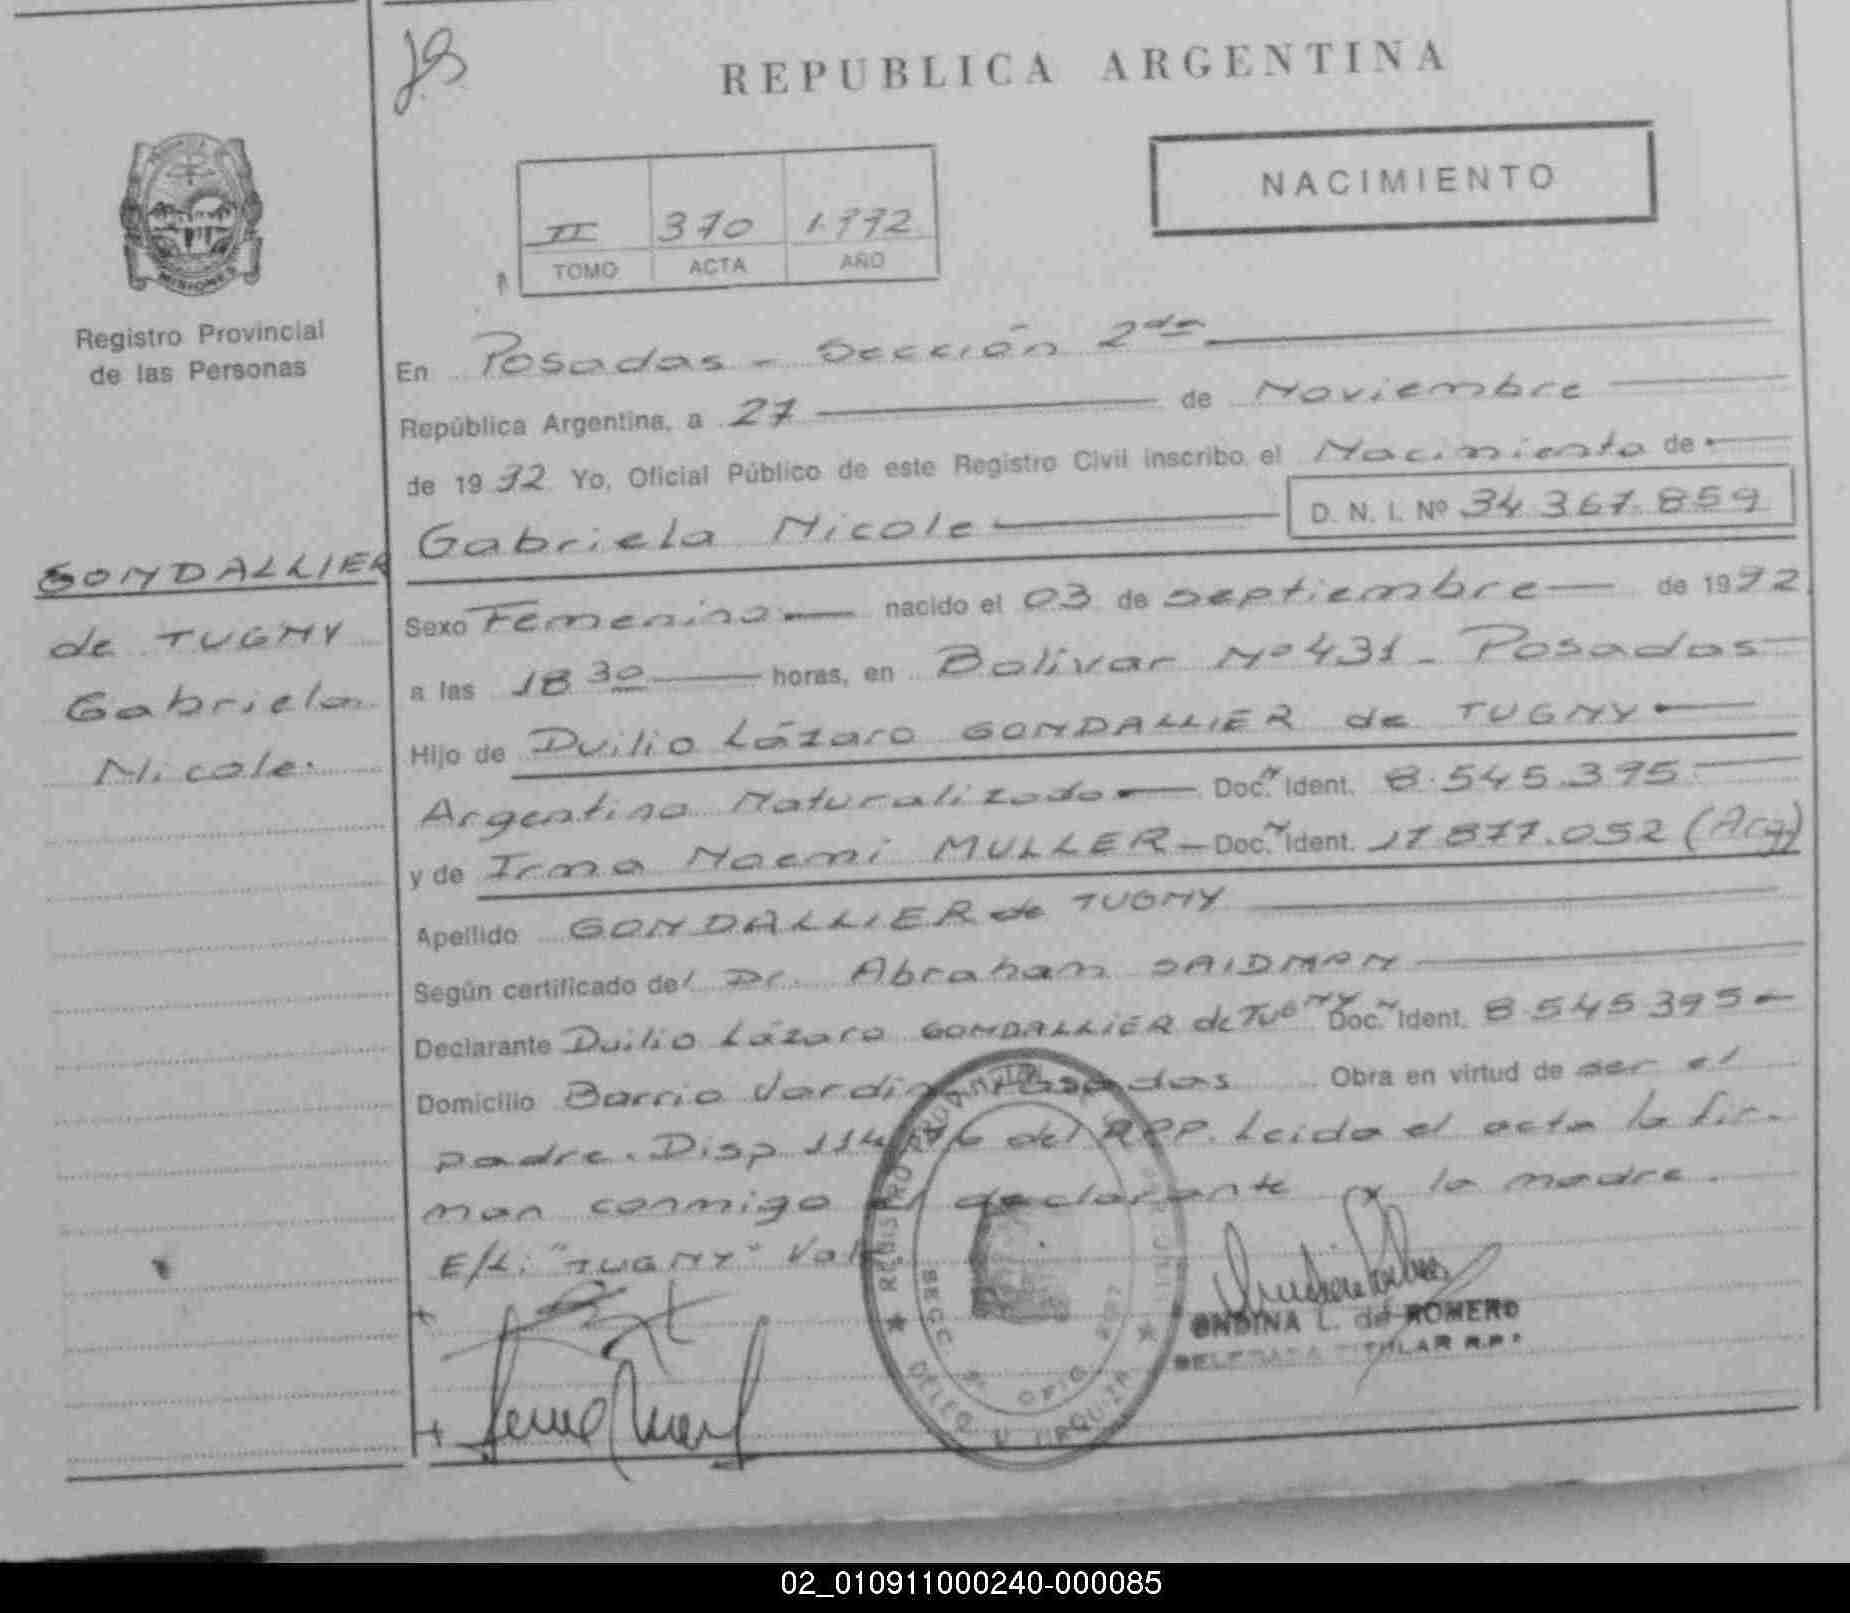 REPUBLICA ARGENTINA
NACIMIENTO
II 370 1.992
TOMO ACTA AÑO
MISIONES
Registro Provincial
de las Personas
GONDALLIER
de TUGNY
Gabriela
Nicole.
En Posadas - Sección 2da
República Argentina, a 27 de Noviembre
de 1992 Yo, Oficial Público de este Registro Civil inscribo el Nacimiento de
Gabriela Nicole D. N. I. Nº 34.367.859
Sexo Femenino nacido el 03 de septiembre de 1992
a las 18 30 horas, en Bolivar Nº 431 - Posadas
Hijo de Duilio Lázaro GONDALLIER de TUGNY
Argentino Naturalizado Doc. Ident. 8.545.395
y de Irma Noemi MULLER Doc. Ident. 17.877.052 (Arg)
Apellido GONDALLIER de TUGNY
Según certificado del Dr. Abraham SAIDMAN
Declarante Duilio Lázaro GONDALLIER de TUGNY Doc. Ident. 8.545.395
Domicilio Barrio Jardin Posadas Obra en virtud de ser el
padre. Disp. 114 del RPP. Leida el acta la fir-
man conmigo el declarante y la madre.
E/L: "TUGNY" Vale
ONDINA L. de ROMERO
DELEGADA TITULAR R.P.
02_010911000240-000085